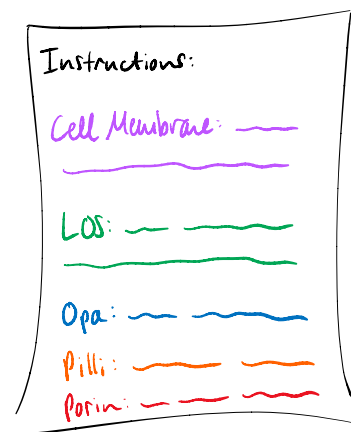 Instructions:
Cell Membrane:
LOS:
Opa:
Pilli:
Porin: